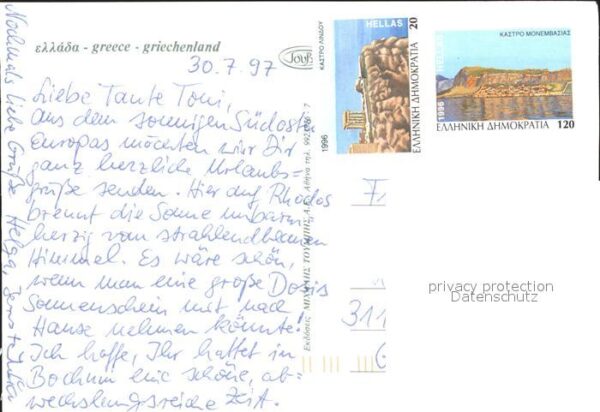 ελλάδα - greece - griechenland
30.7.97
Liebe Tante Toni,
aus dem sonnigen Südosten
Europas möchten wir Dir
ganz herzliche Urlaubs-
grüße senden. Hier auf Rhodos
brennt die Sonne unbarm-
herzig vom strahlendblauen
Himmel. Es wäre schön,
wenn man eine große Dosis
Sonnenschein mit nach
Hause nehmen könnte!
Ich hoffe, Ihr hattet in
Bochum eine schöne, ab-
wechslungsreiche Zeit.
Nochmals liebe Grüße Helga,
ΚΑΣΤΡΟ ΛΙΝΔΟΥ
HELLAS
20
ΕΛΛΗΝΙΚΗ ΔΗΜΟΚΡΑΤΙΑ
1996
ΚΑΣΤΡΟ ΜΟΝΕΜΒΑΣΙΑΣ
HELLAS
1996
ΕΛΛΗΝΙΚΗ ΔΗΜΟΚΡΑΤΙΑ 120
Εκδόσεις ΜΙΧΑΛΗΣ ΤΟΥΜΠΗΣ Α.Ε. Αθήνα τηλ.
311
privacy protection
Datenschutz